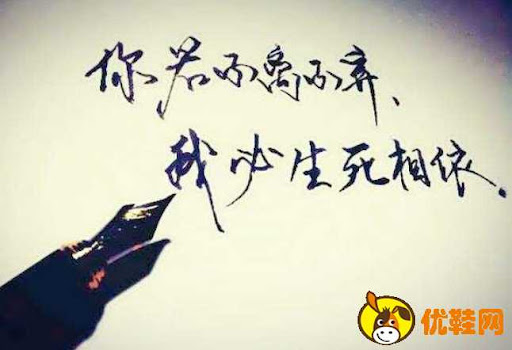 你若不离不弃、
我必生死相依.
优鞋网